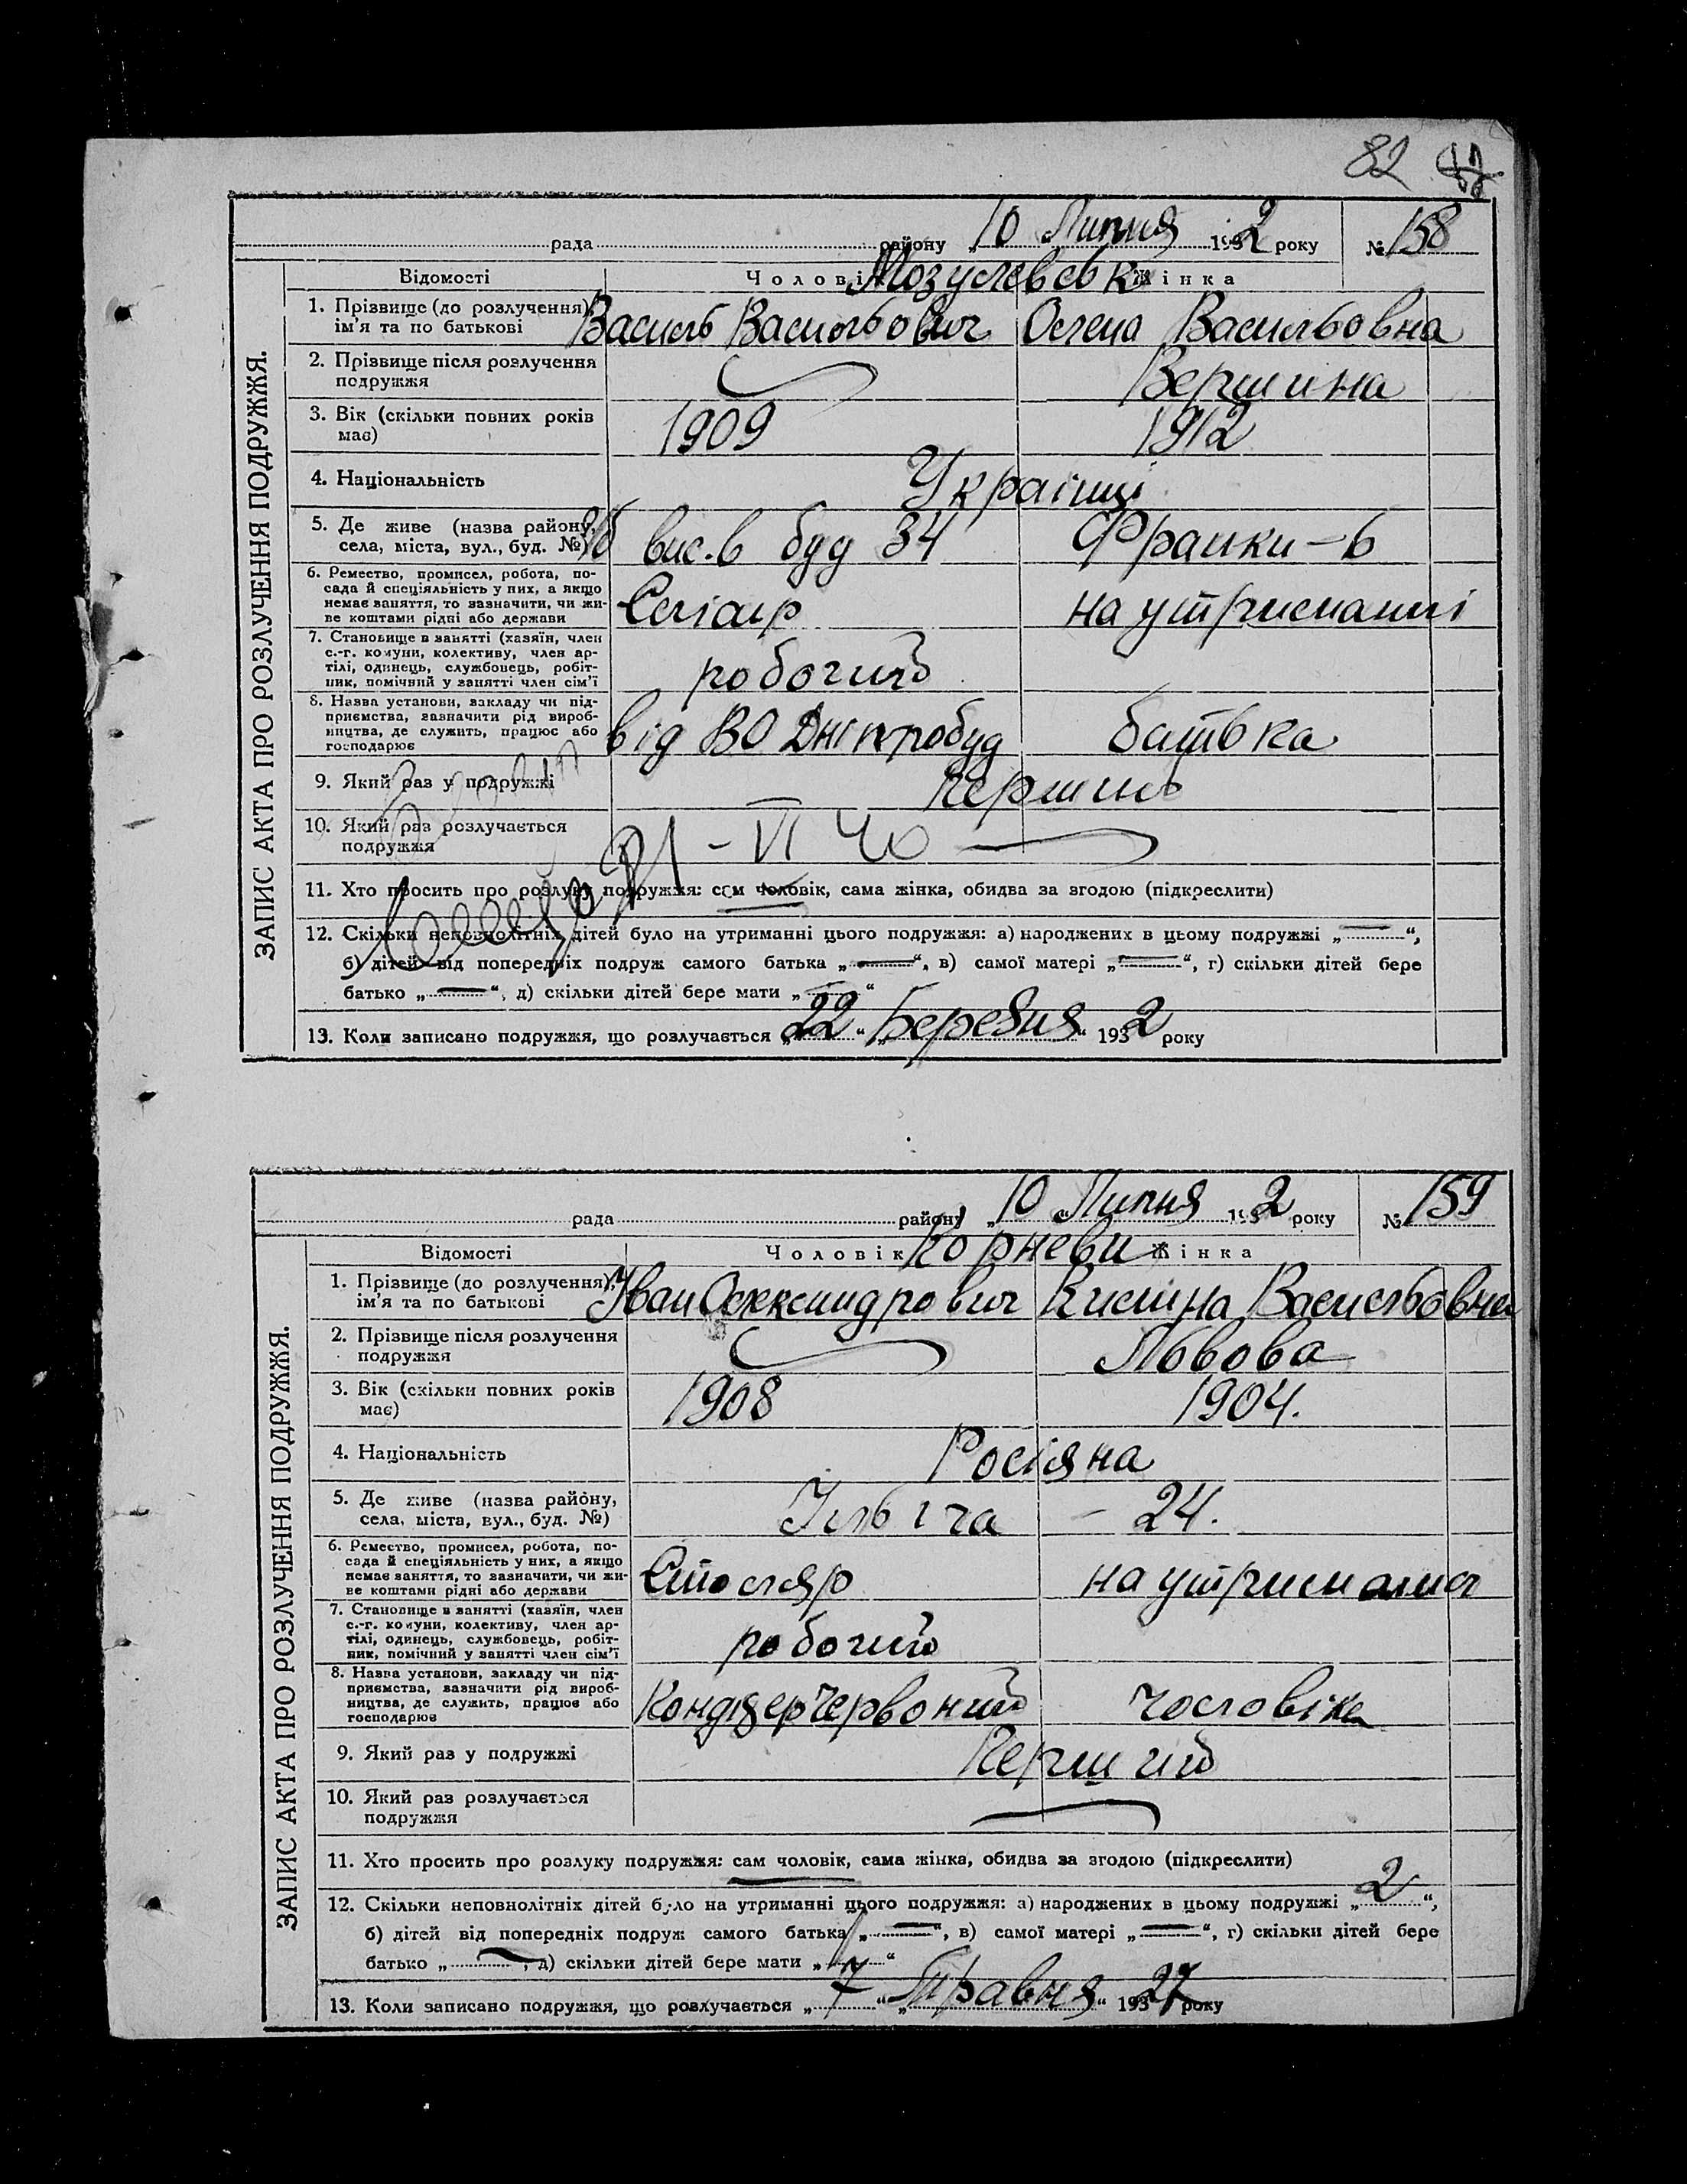 82
рада району „10 Липня 1932 року № 158
Відомості Чоловік Жінка
1. Прізвище (до розлучення), ім'я та по батькові
Василь Васильович Олена Васильовна
2. Прізвище після розлучення подружжя
Вершина
3. Вік (скільки повних років має)
1909 1912
4. Національність
Українці
5. Де живе (назва району, села, міста, вул., буд. №)
вис. 6 буд 34 Франки-6
6. Ремество, промисел, робота, посада й спеціяльність у них, а якщо немає заняття, то зазначити, чи живе коштами рідні або держави
на утриманні
7. Становище в занятті (хазяїн, член с.-г. комуни, колективу, член артілі, одинець, службовець, робітник, помічний у занятті член сім'ї
робочий
8. Назва установи, закладу чи підприємства, зазначити рід виробництва, де служить, працює або господарює
від ВО Дніпробуд батька
9. Який раз у подружжі
10. Який раз розлучається подружжя
11. Хто просить про розлуку подружжя: сам чоловік, сама жінка, обидва за згодою (підкреслити)
12. Скільки неповнолітніх дітей було на утриманні цього подружжя: а) народжених в цьому подружжі „—“,
б) дітей від попередніх подруж самого батька „—“, в) самої матері „—“, г) скільки дітей бере
батько „—“, д) скільки дітей бере мати „—“
13. Коли записано подружжя, що розлучається „22“ „Березня“ 1932 року
ЗАПИС АКТА ПРО РОЗЛУЧЕННЯ ПОДРУЖЖЯ.
рада району „10 Липня 1932 року № 159
Відомості Чоловік Жінка
Корневи
1. Прізвище (до розлучення), ім'я та по батькові
Іван Олександрович Васильовна
2. Прізвище після розлучення подружжя
Львова
3. Вік (скільки повних років має)
1908 1904.
4. Національність
Росіяна
5. Де живе (назва району, села, міста, вул., буд. №)
Ільіча – 24.
6. Ремество, промисел, робота, посада й спеціяльність у них, а якщо немає заняття, то зазначити, чи живе коштами рідні або держави
Столяр на утриманні
7. Становище в занятті (хазяїн, член с.-г. комуни, колективу, член артілі, одинець, службовець, робітник, помічний у занятті член сім'ї
робочий
8. Назва установи, закладу чи підприємства, зазначити рід виробництва, де служить, працює або господарює
Червоний чоловіка
9. Який раз у подружжі
Перший
10. Який раз розлучається подружжя
11. Хто просить про розлуку подружжя: сам чоловік, сама жінка, обидва за згодою (підкреслити)
12. Скільки неповнолітніх дітей було на утриманні цього подружжя: а) народжених в цьому подружжі „2“,
б) дітей від попередніх подруж самого батька „—“, в) самої матері „—“, г) скільки дітей бере
батько „—“, д) скільки дітей бере мати „ “
13. Коли записано подружжя, що розлучається „7“ „Травня“ 193 27 року
ЗАПИС АКТА ПРО РОЗЛУЧЕННЯ ПОДРУЖЖЯ.